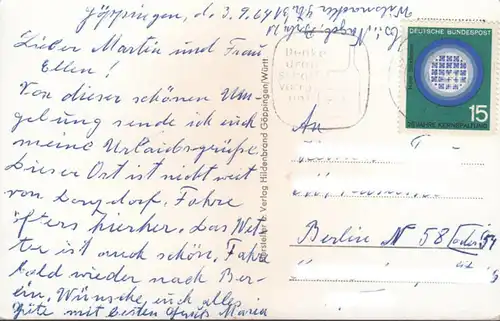 Göppingen, d. 3.9.64
Lieber Martin und Frau
Ellen!
Von dieser schönen Um-
gebung sende ich euch
meine Urlaubsgrüße.
Dieser Ort ist nicht weit
von Lorsdorf. Fahre
öfters hierher. Das Wet-
ter ist auch schön. Fahre
bald wieder nach Ber-
lin. Wünsche euch alles
Gute mit besten Gruß Maria
Hersteller u. Verlag Hildenbrand Göppingen/Württ.
Denke
dran
DEUTSCHE BUNDESPOST
15
25 JAHRE KERNSPALTUNG
An
Berlin N 58